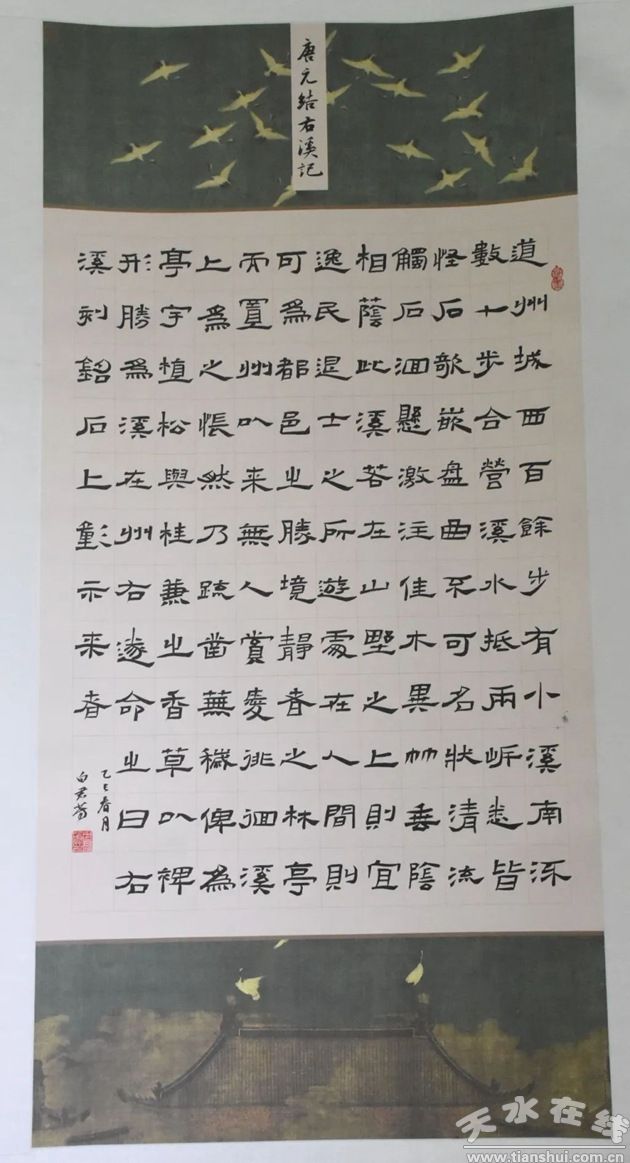 唐元结右溪記
道州城西百餘步有小溪南流
數十步合營溪水抵兩岸悉皆
怪石欹嵌盘曲不可名狀清流
觸石洄懸激注佳木異竹垂陰
相蔭此溪若在山野之上則宜
逸民退士之所遊處在人間則
可爲都邑之勝境靜者之林亭
而置州以来無人賞愛徘徊溪
上爲之悵然乃疏鑿蕪穢俾為
亭宇植松與桂兼之香草以裨
形勝爲溪在州右遂命之曰右
溪刻銘石上彰示来者
乙巳春月
天水在线
www.tianshui.com.cn